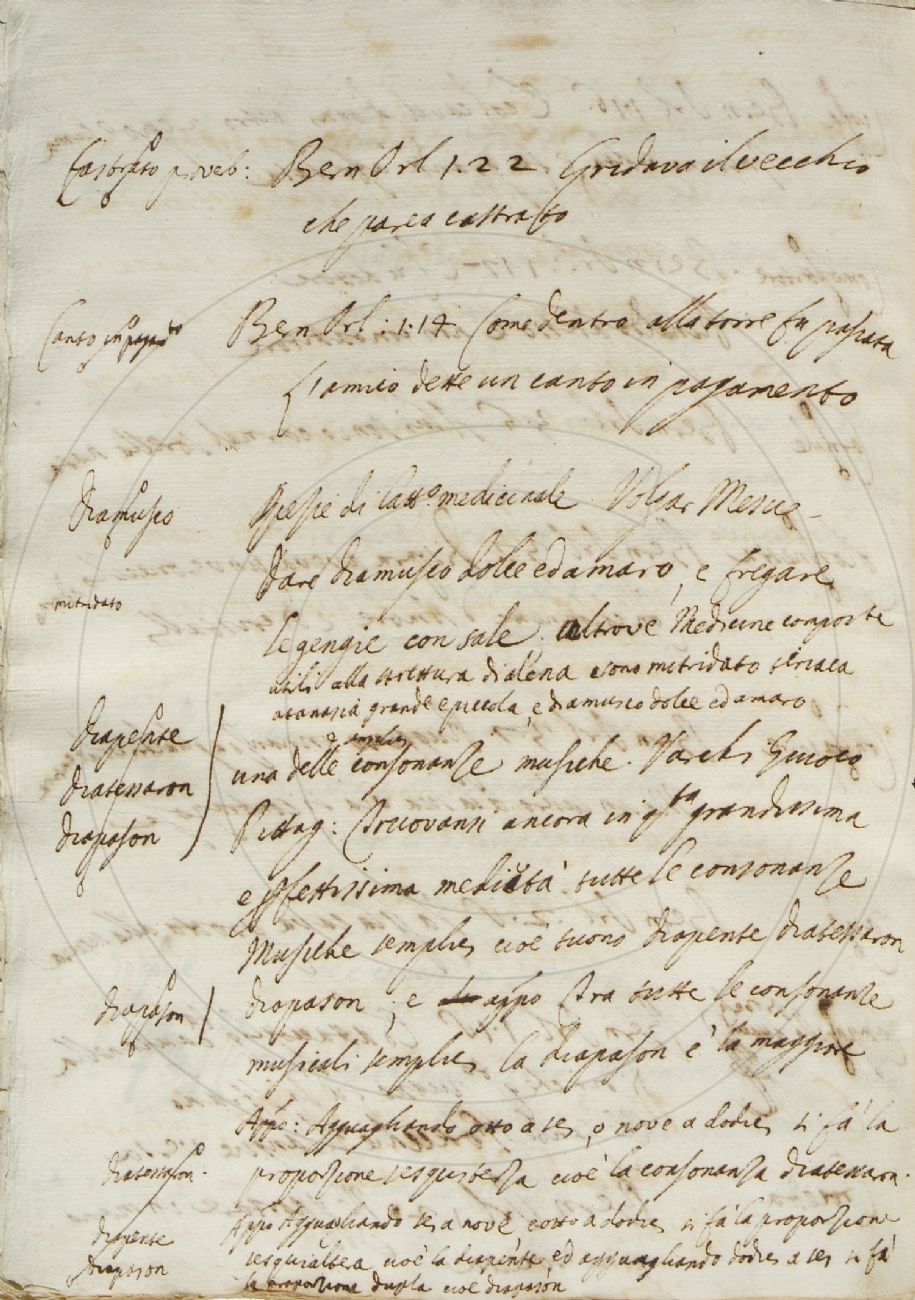 Castrato proverb: Bern Orl 1.22. Gridava il vecchio
che parea castrato
Canto in pagamto Bern Orl: 1:14 Come dentro alla torre fu passata
L'amico dette un canto in pagamento
Diamusco Spezie di latto medicinale. Volgar Mesue
Dare diamusco dolce ed amaro, e fregare
mitridato
le gengie con sale. altrove Medicine composte
utili alla strettura di alena sono mitridato teriaca
atanasia grande e piccola, e diamusco dolce ed amaro
Diapente
semplici
una delle consonanze musiche. Varchi Giuoco
Diatessaron
Pittag: Truovansi ancora in qsta grandissima
Diapason
e pfettissima medietà tutte le consonanze
Musiche semplici cioè suono diapente diatessaron
diapason diapason, e appo Tra tutte le consonanze
musicali semplici la diapason è la maggiore
Appo: Agguagliando otto a sei, o nove a dodici si fà la
diatessaron. proporzione sesquiterza cioè la consonanza diatessaron.
diapente Appo Agguagliando sei a nove e otto a dodici si fà la proporzione
diapason sesquialtera cioè la diapente, ed agguagliando dodici a sei si fà
la proporzione dupla cioè diapason